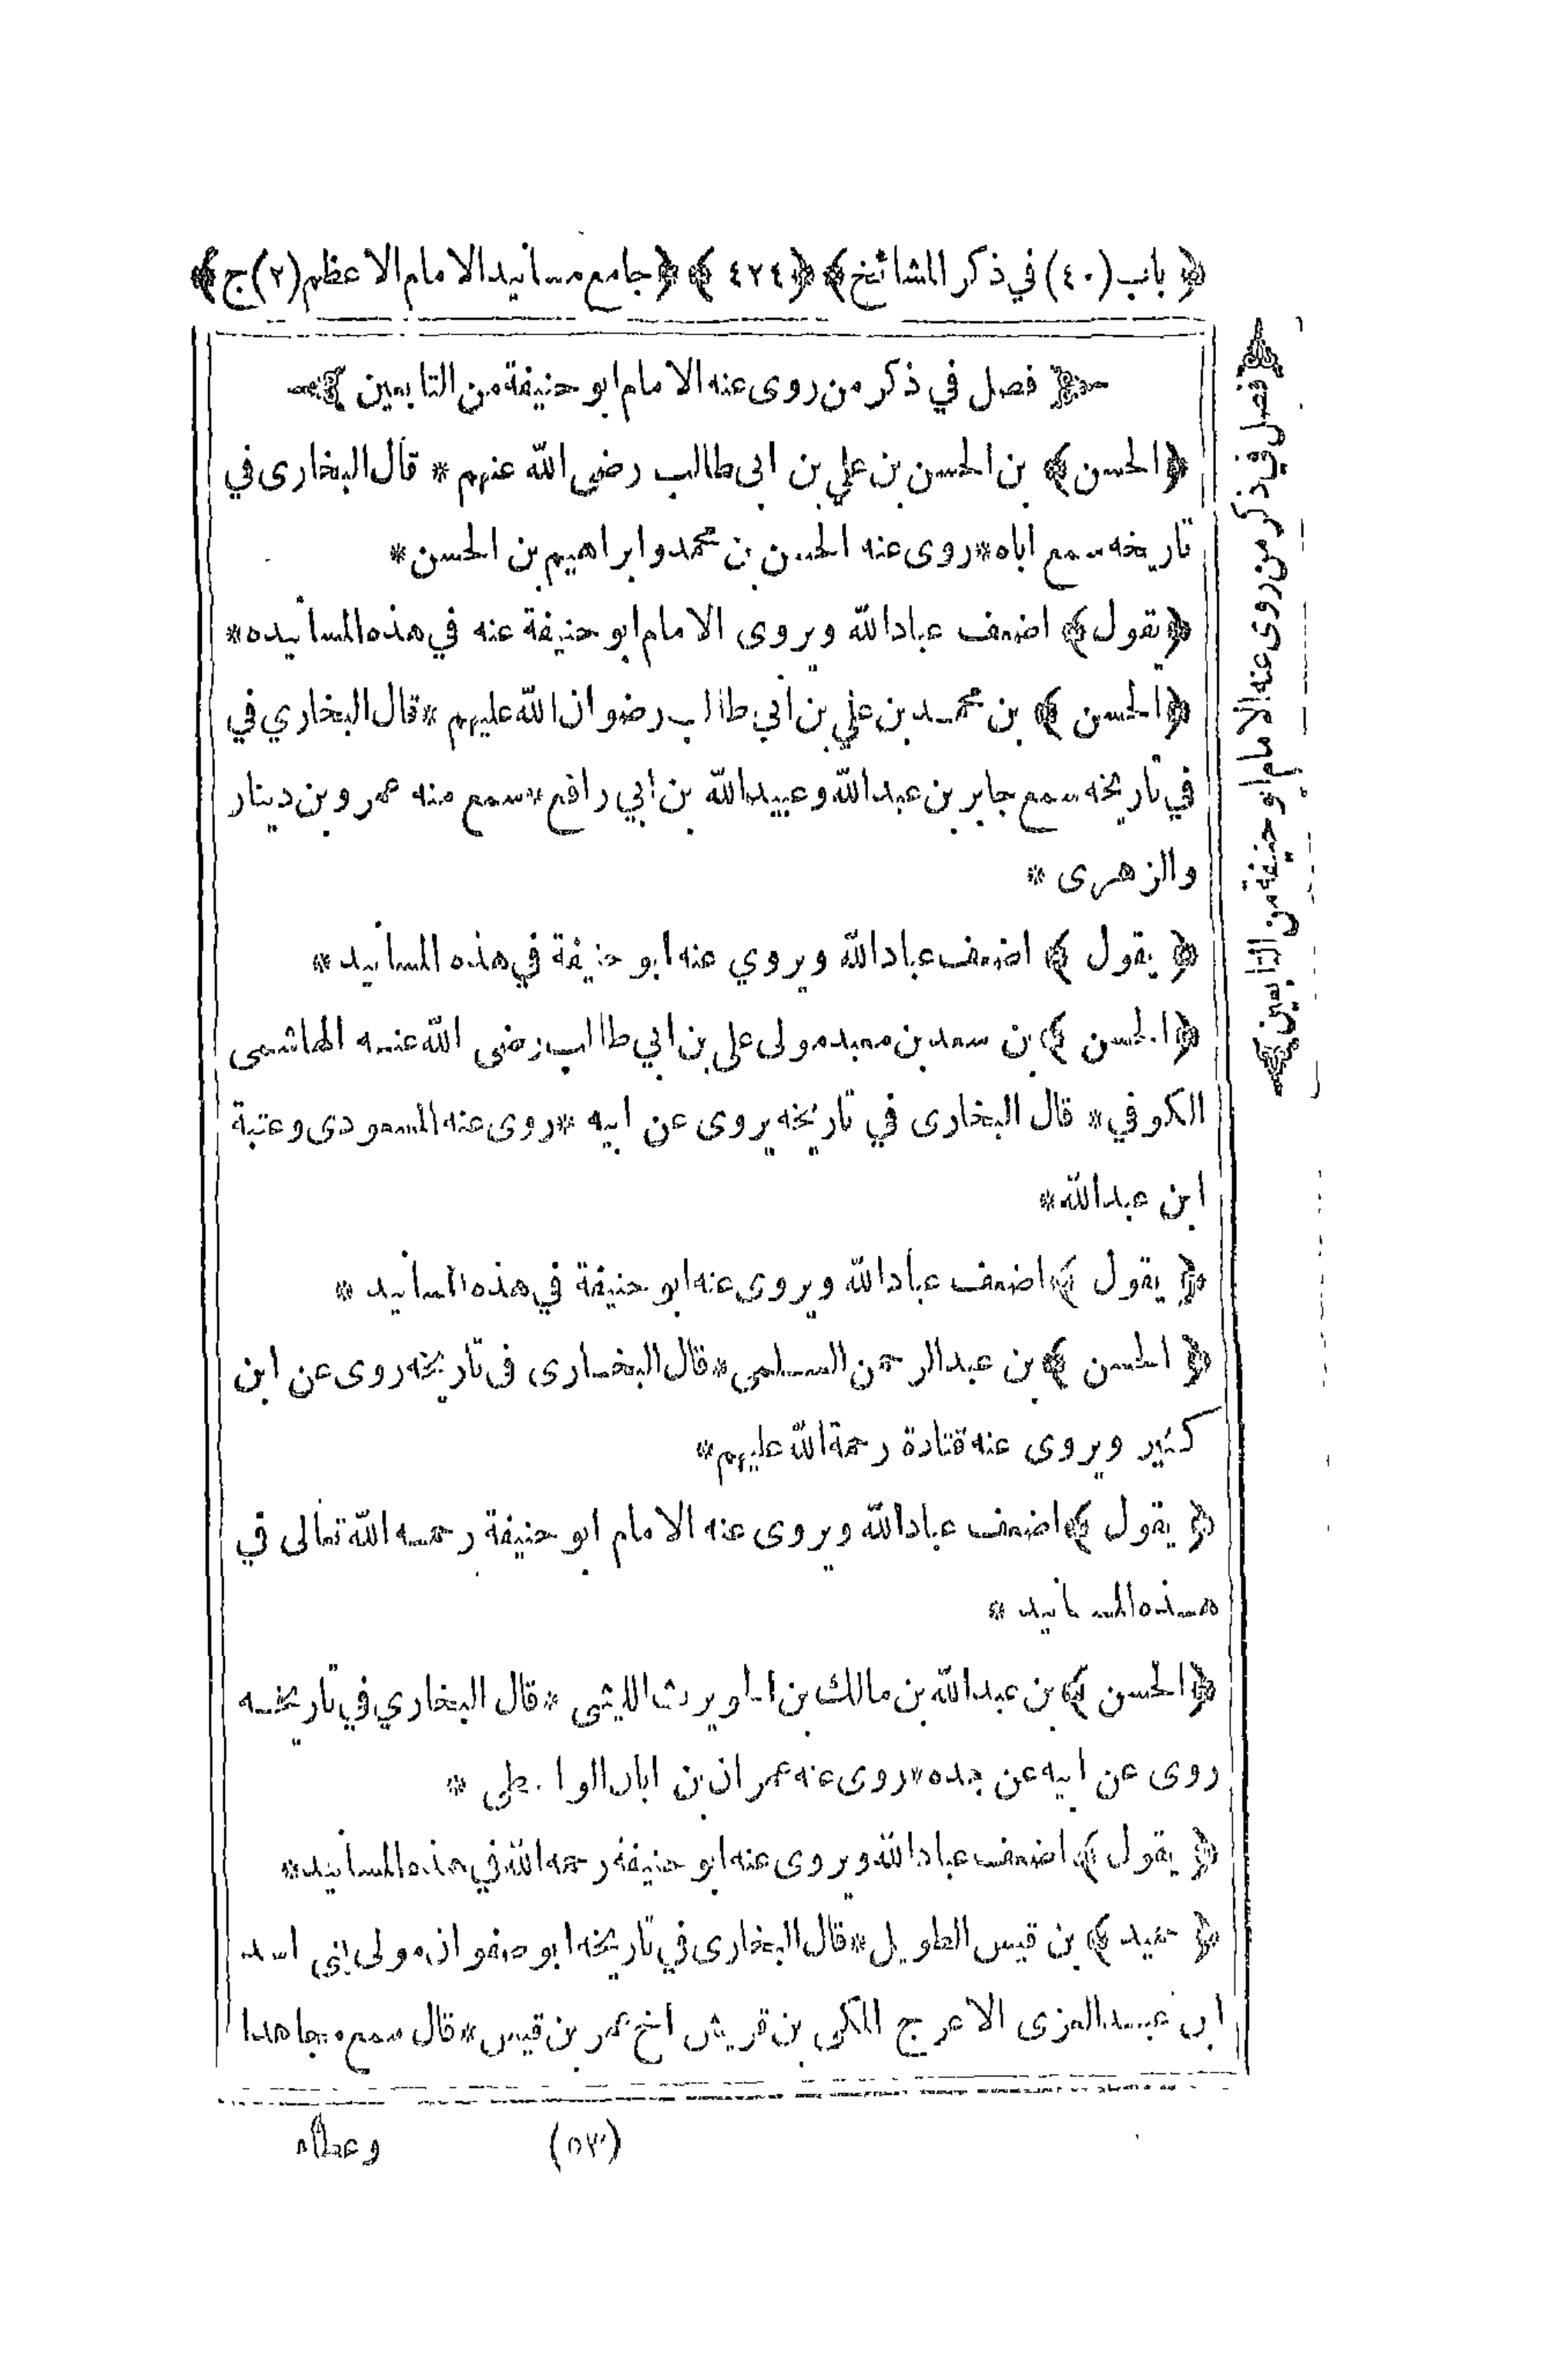 ﴿ باب (٤٠) في ذكر المشائخ ﴾ ﴿ ٤٢٤ ﴾ ﴿ جامع مسانيد الامام الاعظم (٢) ج ﴾
فصل في ذكر من روى عنه الامام ابو حنيفة من التابعين
﴿ الحسن ﴾ بن الحسن بن علي بن ابى طالب رضى الله عنهم * قال البخارى في
تاريخه سمع اباه * روى عنه الحسن بن محمد وابراهيم بن الحسن *
﴿ يقول ﴾ اضعف عباد الله ويروى الامام ابو حنيفة عنه في هذه المسانيده *
﴿ الحسن ﴾ بن محمد بن علي بن أبي طالب رضوان الله عليهم * قال البخاري في
في تاريخه سمع جابر بن عبد الله وعبيد الله بن ابي رافع * سمع منه عمرو بن دينار
والزهرى *
﴿ يقول ﴾ اضعف عباد الله ويروي عنه ابو حنيفة في هذه المسانيد *
﴿ الحسن ﴾ بن سعد بن معبد مولى على بن ابي طالب رضى الله عنه الهاشمى
الكوفي * قال البخارى في تاريخه يروى عن ابيه * روى عنه المسعودى وعتبة
ابن عبد الله *
﴿ يقول ﴾ اضعف عباد الله ويروى عنه ابو حنيفة في هذه المسانيد *
﴿ الحسن ﴾ بن عبد الرحمن السلمى * قال البخارى فى تاريخه روى عن ابن
كثير ويروى عنه قتادة رحمة الله عليهم *
﴿ يقول ﴾ اضعف عباد الله ويروى عنه الامام ابو حنيفة رحمه الله تعالى في
هذه المسانيد *
﴿ الحسن ﴾ بن عبد الله بن مالك بن الحويرث الليثى * قال البخاري في تاريخه
روى عن ابيه عن جده * روى عنه عمران بن ابان الواسطى *
﴿ يقول ﴾ اضعف عباد الله ويروى عنه ابو حنيفة رحمه الله في هذه المسانيد *
﴿ حميد ﴾ بن قيس الطويل * قال البخارى في تاريخه ابو صفوان مولى بنى اسد
ابن عبد العزى الاعرج المكى بن قريش اخ عمر بن قيس * قال سمع مجاهدا
(٥٣)
وعطاء
فصل في ذكر من روى عنه الامام ابو حنيفة من التابعين